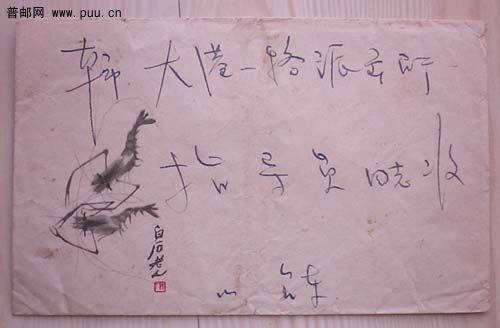 普邮网
www.puu.cn
大港一路派出所
指导员同志收
白石老人